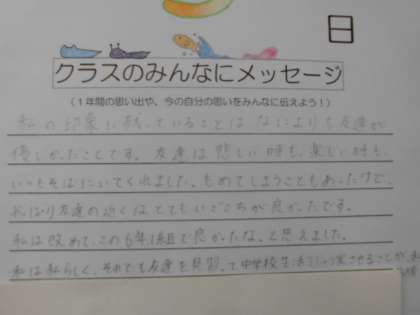 日
クラスのみんなにメッセージ
(1年間の思い出や、今の自分の思いをみんなに伝えよう!)
私の印象に残っていることはなによりも友達が
優しかったことです。友達は悲しい時も、楽しい時も、
いつもそばにいてくれました。もめてしまうこともあったけど、
やはり友達の近くはとてもいごこちが良かったです。
私は改めて、この6年1組で良かったな、と思えました。
私は私らしく、それでも友達を見習って中学校生活を充実させることが